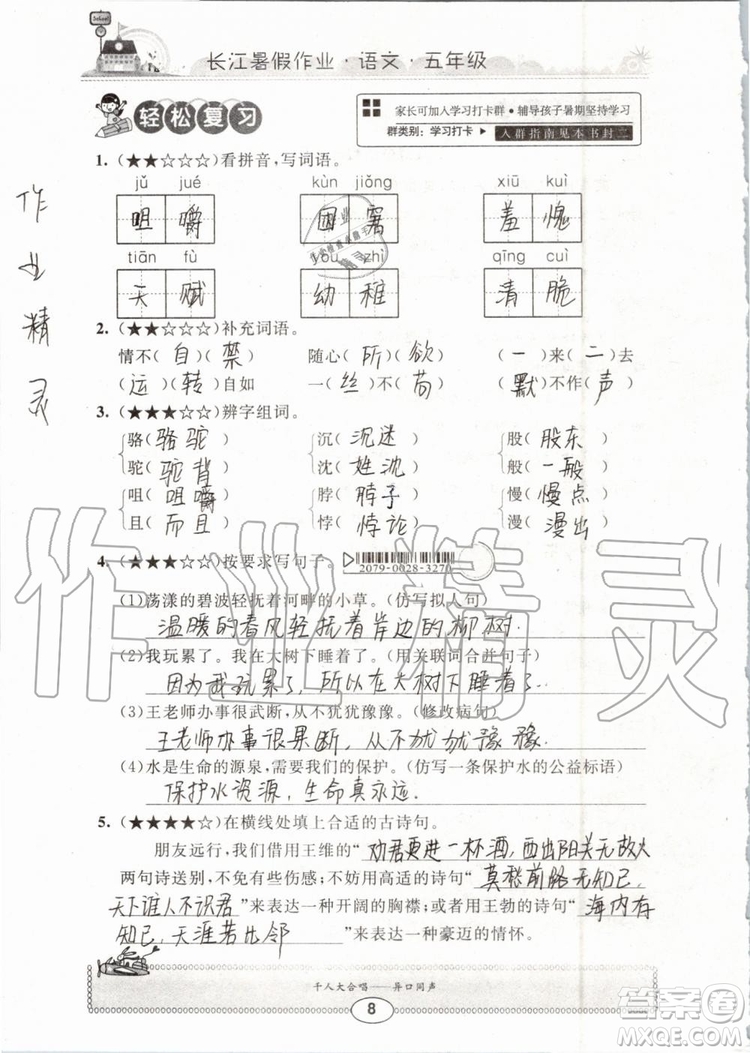 School
长江暑假作业·语文·五年级
轻松复习
家长可加入学习打卡群·辅导孩子暑期坚持学习
群类别：学习打卡 ▶ 入群指南见本书封二
1.（★★☆☆☆）看拼音，写词语。
jǔ jué kùn jiǒng xiū kuì
咀嚼 困窘 羞愧
tiān fù yòu zhì qīng cuì
天赋 幼稚 清脆
2.（★★☆☆☆）补充词语。
情不（自）（禁） 随心（所）（欲） （一）来（二）去
（运）（转）自如 一（丝）不（苟） （默）不作（声）
3.（★★★☆☆）辨字组词。
骆（骆驼） 沉（沉迷） 股（股东）
驼（驼背） 沈（姓沈） 般（一般）
咀（咀嚼） 脖（脖子） 慢（慢点）
且（而且） 悖（悖论） 漫（漫出）
4.（★★★☆☆）按要求写句子。 2079-0028-3270
（1）荡漾的碧波轻抚着河畔的小草。（仿写拟人句）
温暖的春风轻抚着岸边的柳树.
（2）我玩累了。我在大树下睡着了。（用关联词合并句子）
因为我玩累了，所以在大树下睡着了.
（3）王老师办事很武断，从不犹犹豫豫。（修改病句）
王老师办事很果断，从不犹犹豫豫.
（4）水是生命的源泉，需要我们的保护。（仿写一条保护水的公益标语）
保护水资源，生命真永远.
5.（★★★★☆）在横线处填上合适的古诗句。
朋友远行，我们借用王维的“劝君更进一杯酒，西出阳关无故人”
两句诗送别，不免有些伤感；不妨用高适的诗句“莫愁前路无知己，
天下谁人不识君”来表达一种开阔的胸襟；或者用王勃的诗句“海内存
知己，天涯若比邻”来表达一种豪迈的情怀。
千人大合唱——异口同声
8
作业精灵
作业精灵
答案卷
MXQE.COM